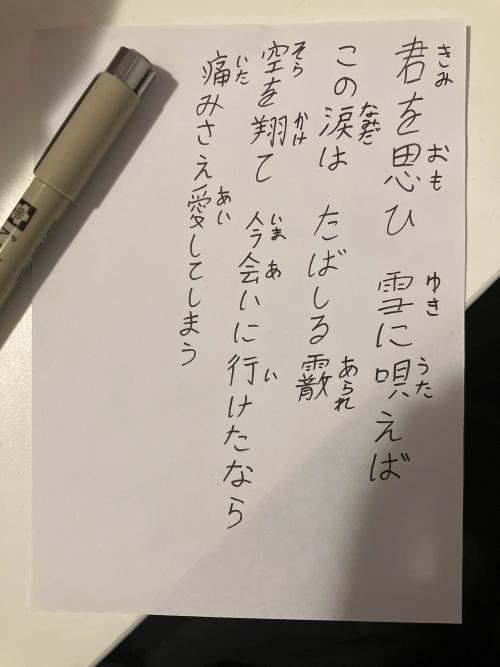 きみ おも ゆき うた
君を思ひ 雪に唄えば
なみだ あられ
この涙は たばしる霰
そら かけ いま あ い
空を翔て 今会いに行けたなら
いた あい
痛みさえ愛してしまう